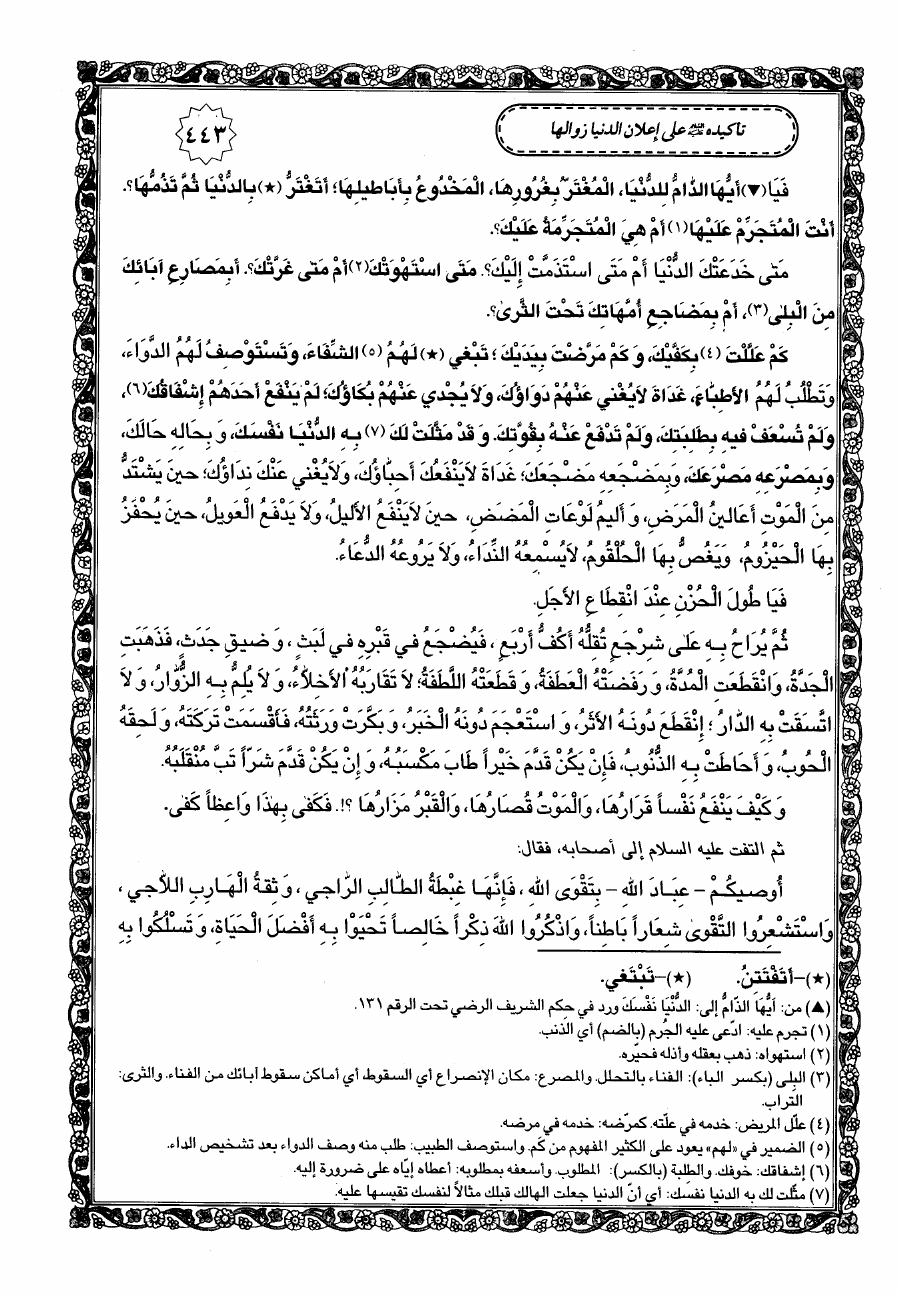 تأكيده ﷺ على إعلان الدنيا زوالها
٤٤٣
فَيَا(▼) أَيُّهَا الذَّامُّ لِلدُّنْيَا، الْمُغْتَرُّ بِغُرُورِهَا، الْمَخْدُوعُ بِأَبَاطيلِهَا؛ أَتَغْتَرُّ (★) بِالدُّنْيَا ثُمَّ تَذُمُّهَا؟.
أَنْتَ الْمُتَجَرِّمُ عَلَيْهَا(١) أَمْ هِيَ الْمُتَجَرِّمَةُ عَلَيْكَ؟.
مَتى خَدَعَتْكَ الدُّنْيَا أَمْ مَتَى اسْتَذَمَّتْ إِلَيْكَ؟. مَتَى اسْتَهْوَتْكَ(٢) أَمْ مَتى غَرَّتْكَ؟. أَبِمَصَارِعِ آبَائِكَ
مِنَ الْبِلى(٣)، أَمْ بِمَضَاجِعِ أُمَّهَاتِكَ تَحْتَ الثَّرى؟.
كَمْ عَلَّلْتَ (٤) بِكَفَّيْكَ، وَ كَمْ مَرَّضْتَ بِيَدَيْكَ؛ تَبْغي (★) لَهُمُ (٥) الشِّفَاءَ، وَتَسْتَوْصِفُ لَهُمُ الدَّوَاءَ،
وَتَطْلُبُ لَهُمُ الأَطِبَّاءَ، غَدَاةَ لاَيُغْني عَنْهُمْ دَوَاؤُكَ، وَلاَ يُجْدي عَنْهُمْ بُكَاؤُكَ؛ لَمْ يَنْفَعْ أَحَدَهُمْ إِشْفَاقُكَ(٦)،
وَلَمْ تُسْعَفْ فيهِ بِطَلِبَتِكَ، وَلَمْ تَدْفَعْ عَنْهُ بِقُوَّتِكَ. وَ قَدْ مَثَّلَتْ لَكَ (٧) بِهِ الدُّنْيَا نَفْسَكَ، وَ بِحَالِهِ حَالَكَ،
وَبِمَصْرَعِهِ مَصْرَعَكَ، وَبِمَضْجَعِهِ مَضْجَعَكَ؛ غَدَاةَ لاَيَنْفَعُكَ أَحِبَّاؤُكَ، وَلاَيُغْني عَنْكَ نِدَاؤُكَ؛ حينَ يَشْتَدُّ
مِنَ الْمَوْتِ أَعَالينُ الْمَرَضِ، وَ أَليمُ لَوْعَاتِ الْمَضَضِ، حينَ لاَيَنْفَعُ الأَليلُ، وَلاَ يَدْفَعُ الْعَويلُ، حينَ يُحْفَزُ
بِهَا الْحَيْزُومُ، وَيَغَصُّ بِهَا الْحُلْقُومُ، لاَيُسْمِعُهُ النِّدَاءُ، وَلاَ يَرُوعُهُ الدُّعَاءُ.
فَيَا طُولَ الْحُزْنِ عِنْدَ انْقِطَاعِ الأَجَلِ.
ثُمَّ يُرَاحُ بِهِ عَلى شَرْجَعٍ تُقِلُّهُ أَكُفُّ أَرْبَعٍ، فَيُضْجَعُ في قَبْرِهِ في لَبَثٍ، وَ ضيقِ جَدَثٍ، فَذَهَبَتِ
الْجِدَّةُ، وَانْقَطَعَتِ الْمُدَّةُ، وَ رَفَضَتْهُ الْعَطَفَةُ، وَ قَطَعَتْهُ اللَّطَفَةُ؛ لاَ تُقَارِبُهُ الأَخِلاَّءُ، وَ لاَ يُلِمُّ بِهِ الزُّوَّارُ، وَ لاَ
اتَّسَقَتْ بِهِ الدَّارُ؛ إِنْقَطَعَ دُونَهُ الأَثَرُ، وَ اسْتَعْجَمَ دُونَهُ الْخَبَرُ، وَ بَكَّرَتْ وَرَثَتُهُ، فَأَقْسَمَتْ تَرِكَتَهُ، وَ لَحِقَهُ
الْحُوبُ، وَ أَحَاطَتْ بِهِ الذُّنُوبُ، فَإِنْ يَكُنْ قَدَّمَ خَيْراً طَابَ مَكْسَبُهُ، وَ إِنْ يَكُنْ قَدَّمَ شَرّاً تَبَّ مُنْقَلَبُهُ.
وَ كَيْفَ يَنْفَعُ نَفْساً قَرَارُهَا، وَالْمَوْتُ قُصَارُهَا، وَالْقَبْرُ مَزَارُهَا ؟!. فَكَفى بِهذَا وَاعِظاً كَفى.
ثم التفت عليه السلام إلى أصحابه، فقال:
أُوصيكُمْ - عِبَادَ اللهِ - بِتَقْوَى اللهِ، فَإِنَّهَا غِبْطَةُ الطَّالِبِ الرَّاجي، وَ ثِقَةُ الْهَارِبِ اللاَّجي،
وَاسْتَشْعِرُوا التَّقْوى شِعَاراً بَاطِناً، وَاذْكُرُوا اللهَ ذِكْراً خَالِصاً تَحْيَوْا بِهِ أَفْضَلَ الْحَيَاةِ، وَ تَسْلُكُوا بِهِ
(★)-أَتَفْتَتِنُ. (★)-تَبْتَغي.
(▲) من: أَيُّهَا الذَّامُّ إلى: الدُّنْيَا نَفْسَكَ ورد في حِكم الشريف الرضي تحت الرقم ١٣١.
(١) تجرم عليه: ادّعى عليه الجُرم (بالضم) أي الذنب.
(٢) استهواه: ذهب بعقله وأذله فحيّره.
(٣) البِلى (بكسر الباء): الفناء بالتحلل. والمصرع: مكان الإنصراع أي السقوط، أي أماكن سقوط آبائك من الفناء. والثرى:
التراب.
(٤) علّل المريض: خدمه في علّته. كمرّضه: خدمه في مرضه.
(٥) الضمير في «لهم» يعود على الكثير المفهوم من كَم. واستوصف الطبيب: طلب منه وصف الدواء بعد تشخيص الداء.
(٦) إشفاقك: خوفك. والطلبة (بالكسر): المطلوب. وأسعفه بمطلوبه: أعطاه إيّاه على ضرورة إليه.
(٧) مثّلت لك به الدنيا نفسَك: أي أنّ الدنيا جعلت الهالك قبلك مثالاً لنفسك تقيسها عليه.